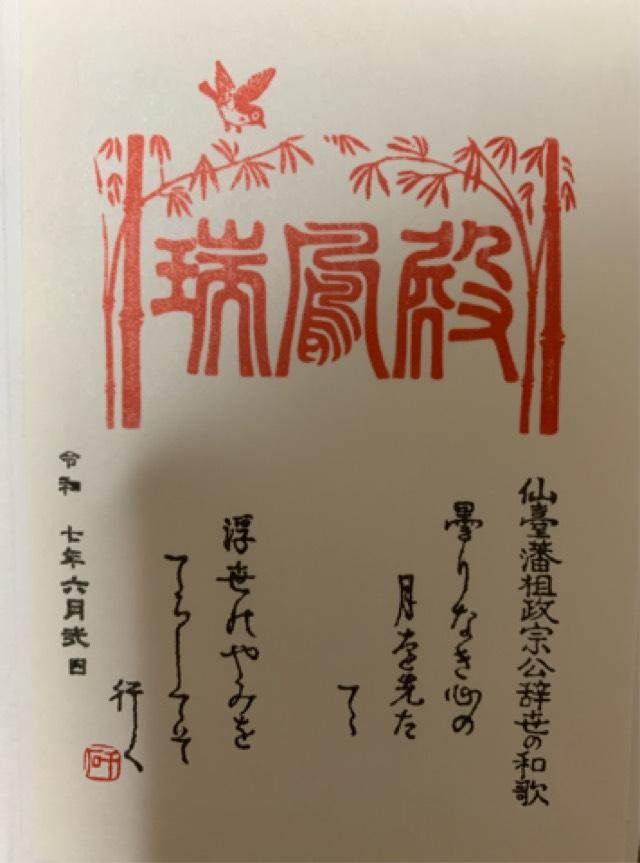 瑞鳳殿
仙臺藩祖政宗公辞世の和歌
曇りなき心の
月を先た
てゝ
浮世のやみを
てらしてそ
行く
令和 七年六月弐日